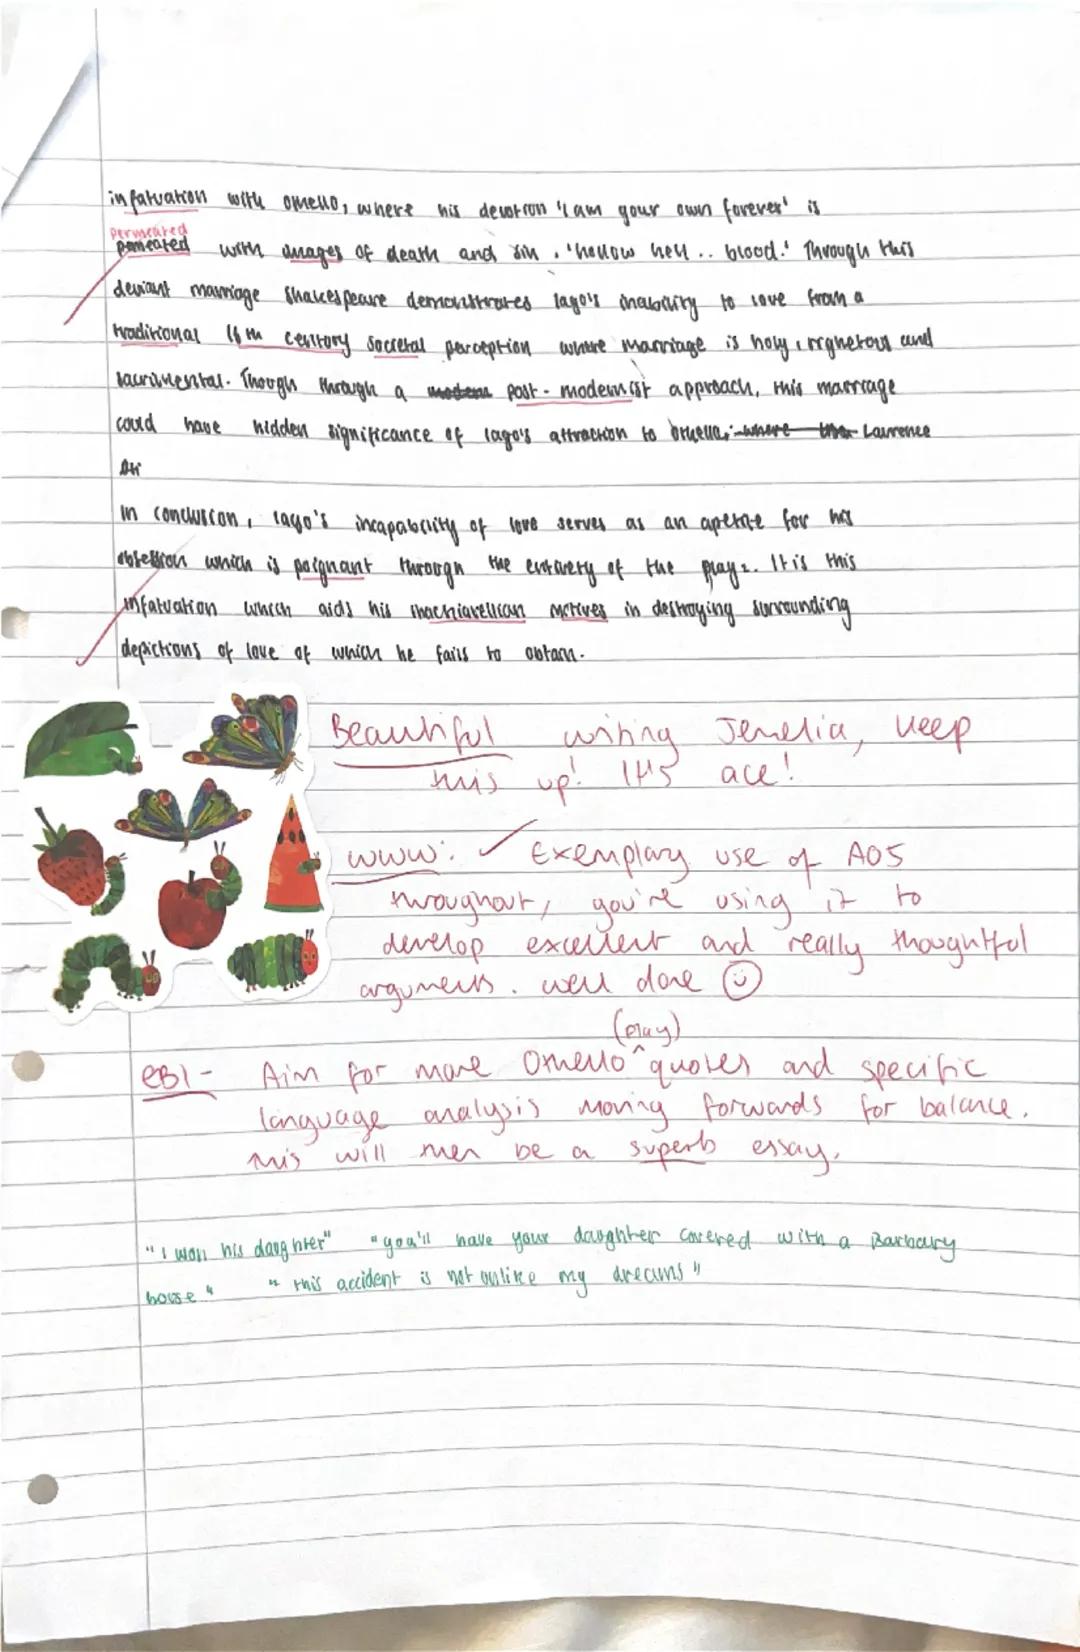 infatuation with Othello, where his devotion 'I am your own forever' is
permeated
pemeated with images of death and sin, 'hollow hell .. blood.' Through this
deviant marriage Shakespeare demonstrates Iago's inability to love from a
traditional 16th century societal perception where marriage is holy, righetous and
sacrimental. Though through a modern post-modernist approach, this marriage
could have hidden significance of Iago's attraction to Othello, where the Laurence
In conclusion, Iago's incapability of love serves as an for his
obsession which is poignant through the entirety of the play. It is this
infatuation which aids his machiavellian motives in destroying surrounding
depictions of love of which he fails to obtain.
Beautiful writing Jenelia, keep
this up! It's ace!
WWW: ✓ Exemplary use of AO5
throughout, you're using it to
develop excellent and really thoughtful
arguments. well done ☺
(play)
EBI - Aim for more Othello ^ quotes and specific
language analysis moving forwards for balance.
This will then be a superb essay.
"I won his daughter" "you'll have your daughter covered with a Barbary
horse" "this accident is not unlike my dreams"